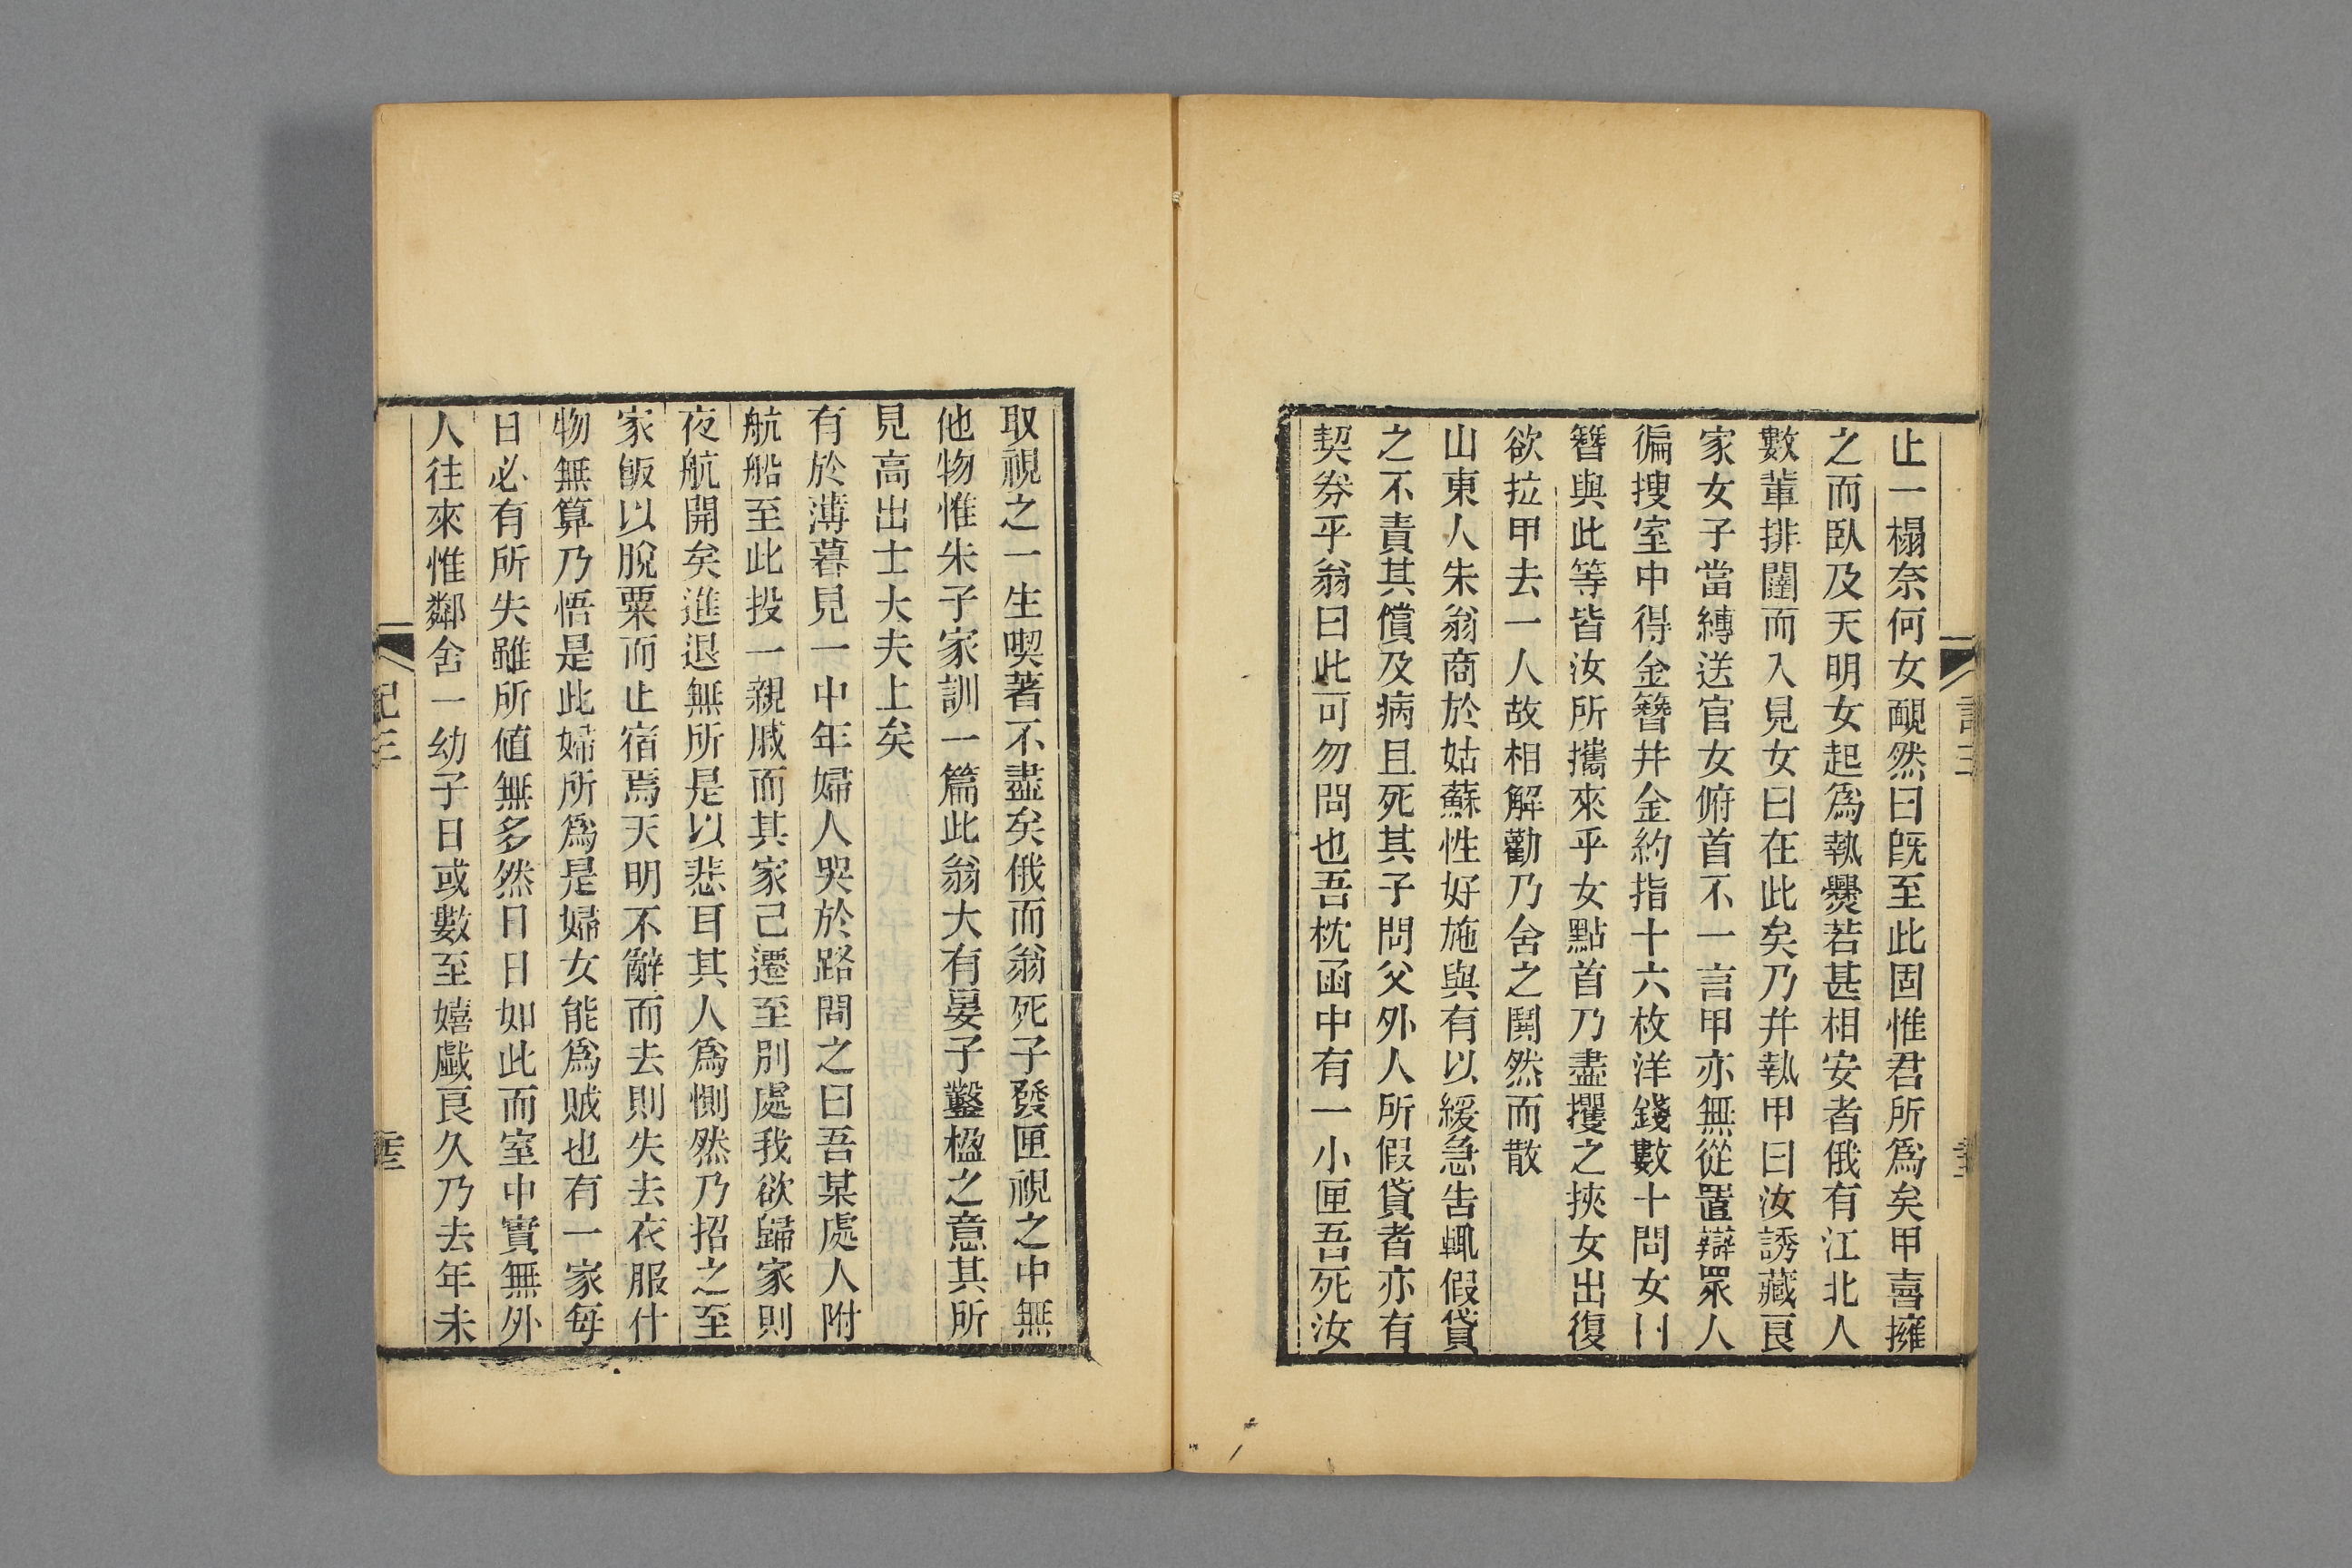 止一榻奈何女靦然曰既至此固惟君所爲矣甲喜擁
之而臥及天明女起爲執爨若甚相安者俄有江北人
數輩排闥而入見女曰在此矣乃幷執甲曰汝誘藏良
家女子當縛送官女俯首不一言甲亦無從置辯眾人
徧搜室中得金簪幷金約指十六枚洋錢數十問女曰
簪與此等皆汝所攜來乎女點首乃盡攫之挾女出復
欲拉甲去一人故相解勸乃舍之鬨然而散
山東人朱翁商於姑蘇性好施與有以緩急告輒假貸
之不責其償及病且死其子問父外人所假貸者亦有
契券乎翁曰此可勿問也吾枕函中有一小匣吾死汝
取視之一生喫著不盡矣俄而翁死子發匣視之中無
他物惟朱子家訓一篇此翁大有晏子鑿楹之意其所
見高出士大夫上矣
有於薄暮見一中年婦人哭於路問之曰吾某處人附
航船至此投一親戚而其家已遷至別處我欲歸家則
夜航開矣進退無所是以悲耳其人爲惻然乃招之至
家飯以脫粟而止宿焉天明不辭而去則失去衣服什
物無算乃悟是此婦所爲是婦女能爲賊也有一家每
日必有所失雖所值無多然日日如此而室中實無外
人往來惟鄰舍一幼子日或數至嬉戲良久乃去年未
記三